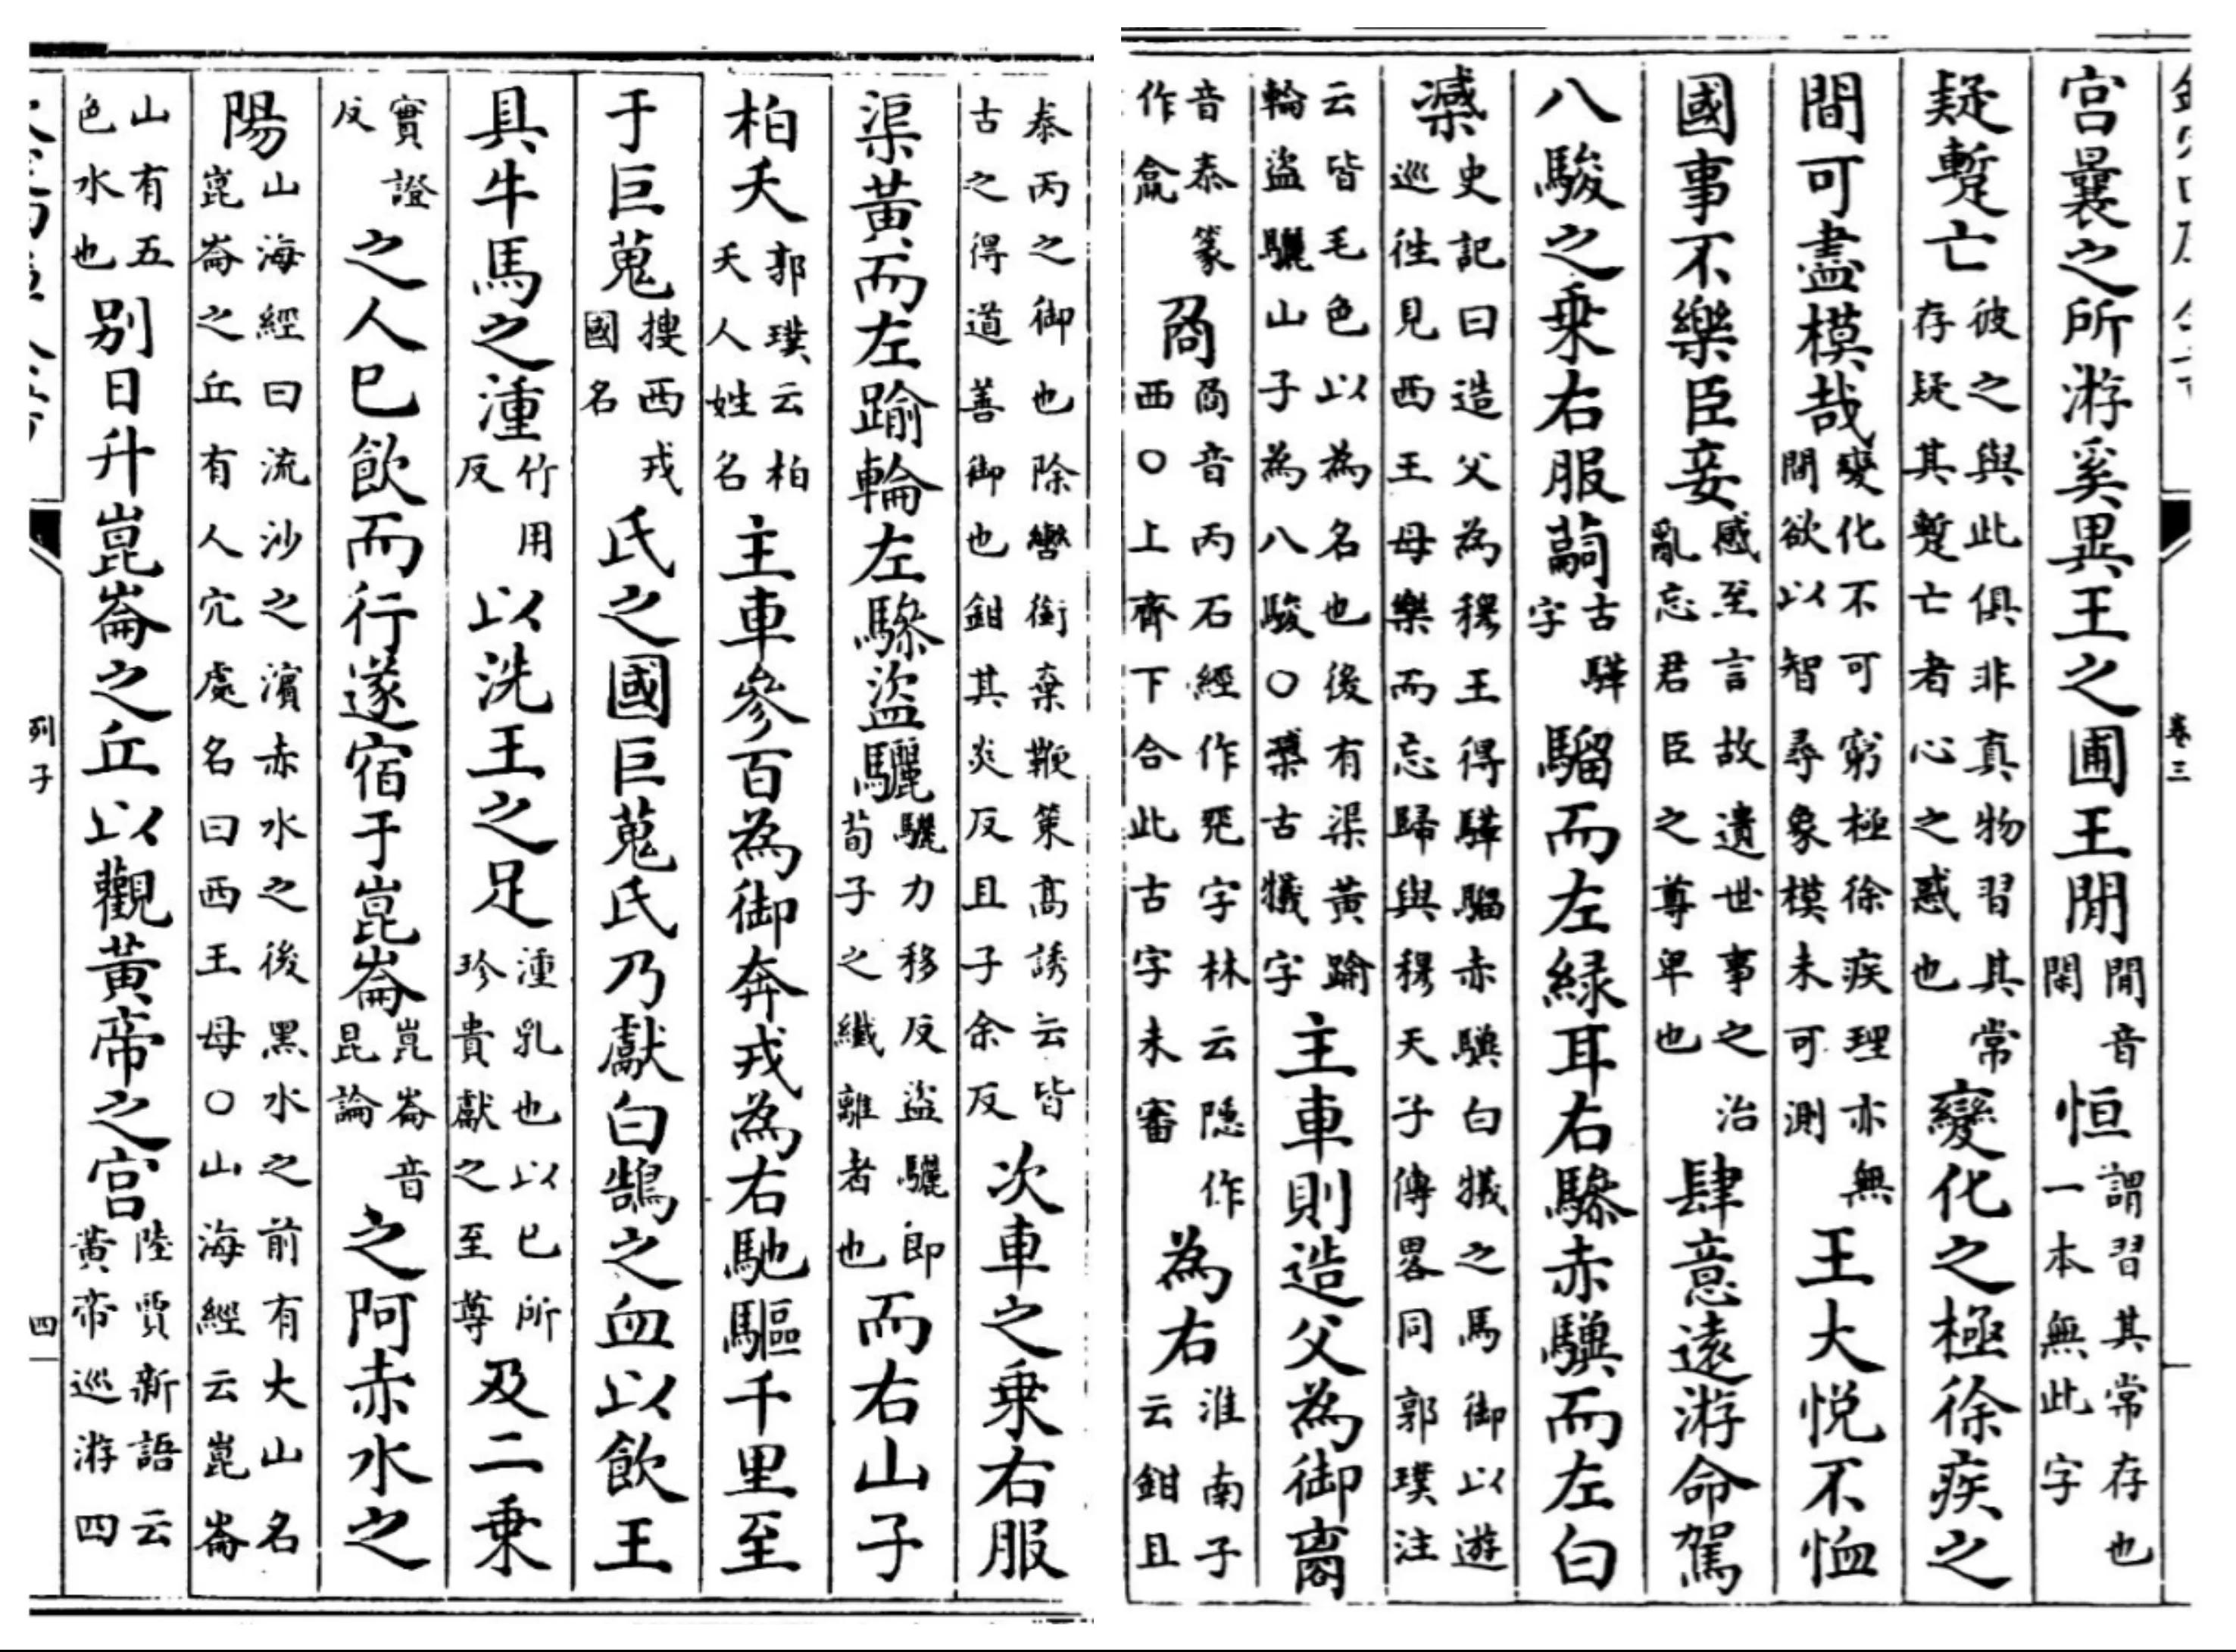 卷三
宫曩之所游奚異王之圃王閒閒音閑恒謂習其常存也一本無此字
疑蹔亡彼之與此俱非真物習其常存疑其蹔亡者心之惑也變化之極徐疾之
間可盡模哉變化不可窮極徐疾理亦無間欲以智尋象模未可測王大悦不恤
國事不樂臣妾感至言故遺世事之治亂忘君臣之尊卑也肆意遠游命駕
八駿之乗右服古驊字騮而左緑耳右驂赤驥而左白
史記曰造父為穆王得驊騮赤驥白犠之馬御以遊巡徃見西王母樂而忘歸與穆天子傳畧同郭璞注
云皆毛色以為名也後有渠黄踰輪盜驪山子為八駿○古犠字主車則造父為御
音泰篆作音丙石經作字林云隠作西○上齊下合此古字未審為右淮南子云鉗且
泰丙之御也除轡銜棄鞭策髙誘云皆古之得道善御也鉗其炎反且子余反次車之乗右服
渠黄而左踰輪左驂盜驪驪力移反盜驪即荀子之纖離者也而右山子
柏夭郭璞云柏夭人姓名主車參百為御奔戎為右馳驅千里至
于巨蒐搜西戎國名氏之國巨蒐氏乃獻白鵠之血以飲王
具牛馬之湩竹用反以洗王之足湩乳也以已所珍貴獻之至尊及二乗
實證反之人已飲而行遂宿于崑崙崑崙音昆論之阿赤水之
陽山海經曰流沙之濱赤水之後黑水之前有大山名崑崙之丘有人穴處名曰西王母○山海經云崑崙
山有五色水也别日升崑崙之丘以觀黄帝之宫陸賈新語云黄帝巡游四
列子
四